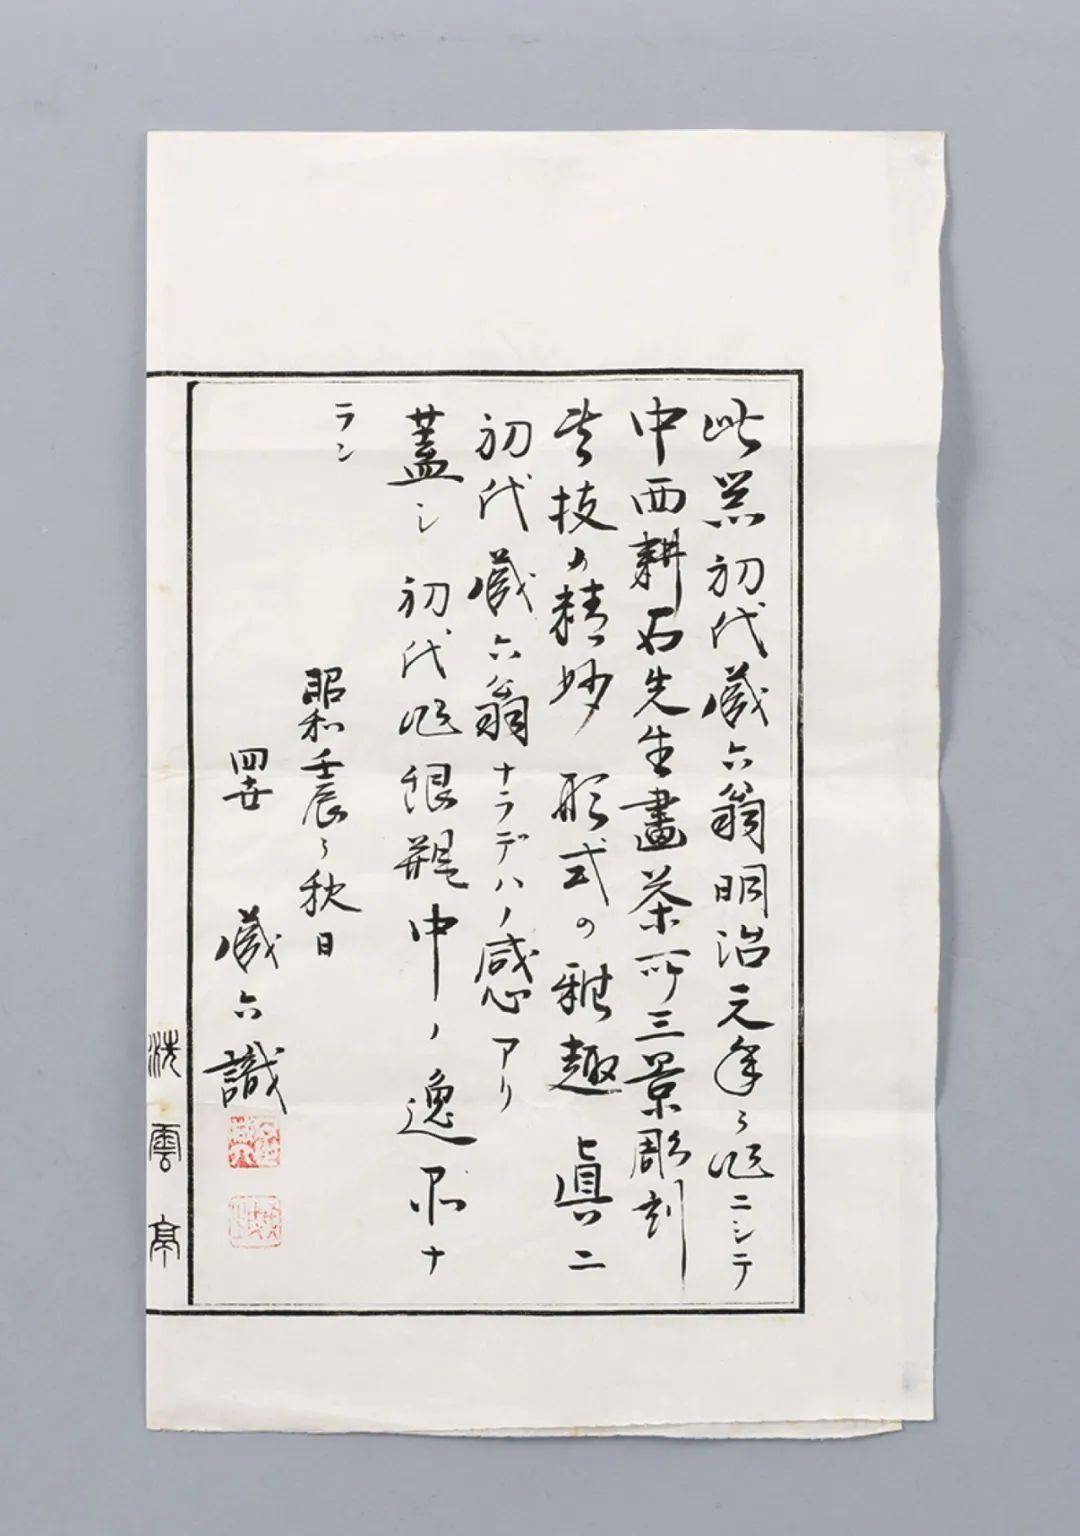 此器初代蔵六翁明治元年之作ニシテ
中西耕石先生畫茶所三景彫刻
其技の精妙形式の雅趣眞ニ
初代蔵六翁ナラデハノ感アリ
蓋シ初代作銀瓶中ノ逸品ナ
ラン
昭和壬辰之秋日
四世 蔵六識
洗雲亭